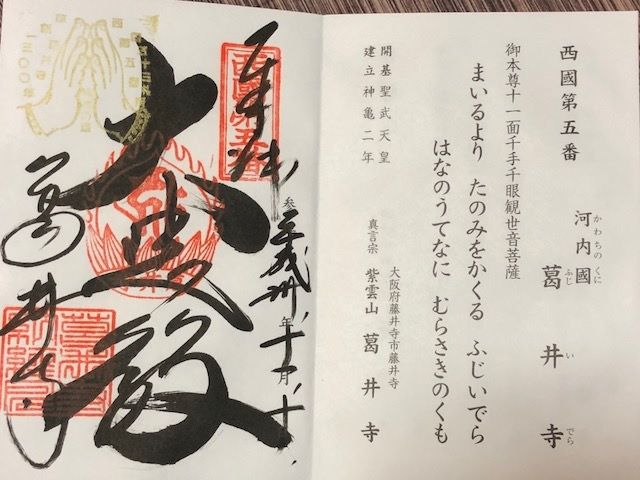 西國第五番
河内國 葛井寺
かわちのくに ふじ い でら
御本尊十一面千手千眼観世音菩薩
まいるより たのみをかくる ふじいでら
はなのうてなに むらさきのくも
開基聖武天皇
建立神亀二年
大阪府藤井寺市藤井寺
真言宗 紫雲山 葛井寺
西國第五番
奉拝
平成卅年十一月十
大悲殿
葛井寺